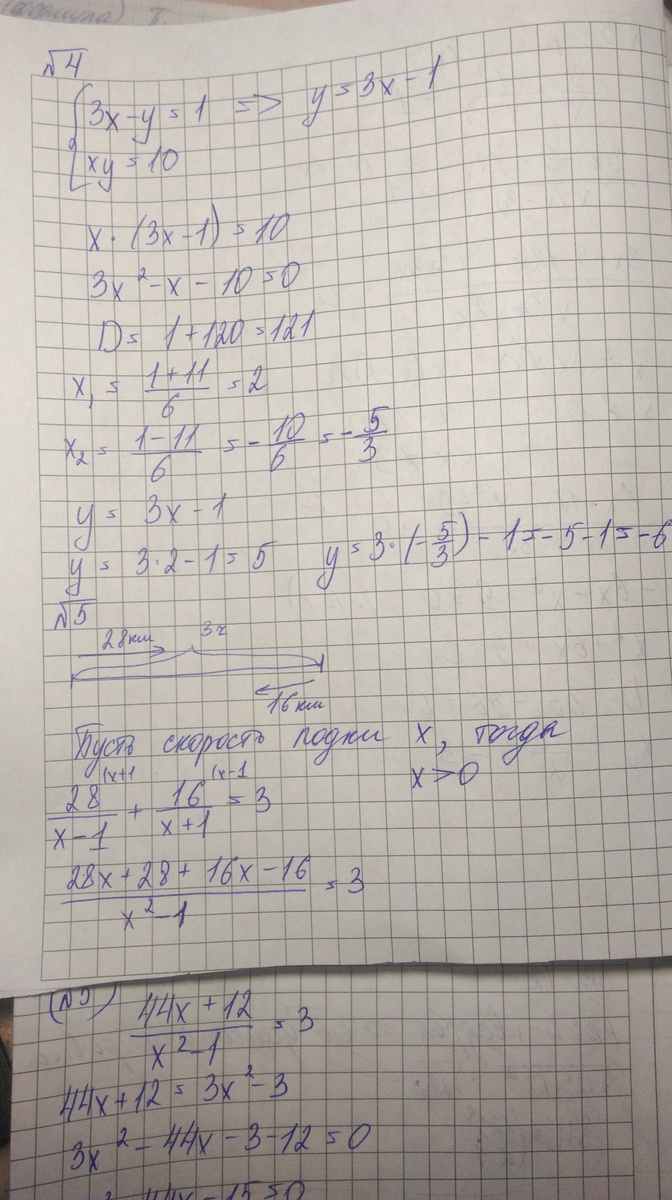 №4
{3x-y=1 => y=3x-1
xy=10
x·(3x-1)=10
3x²-x-10=0
D=1+120=121
x₁=(1+11)/6=2
x₂=(1-11)/6=-10/6=-5/3
y=3x-1
y=3·2-1=5 y=3·(-5/3)-1=-5-1=-6
№5
28км 3ч
16км
Пусть скорость лодки x, тогда
x>0
28/(x-1) (x+1 + 16/(x+1) (x-1 =3
(28x+28+16x-16)/(x²-1)=3
(№5)
(44x+12)/(x²-1)=3
44x+12=3x²-3
3x²-44x-3-12=0
44x-15=0